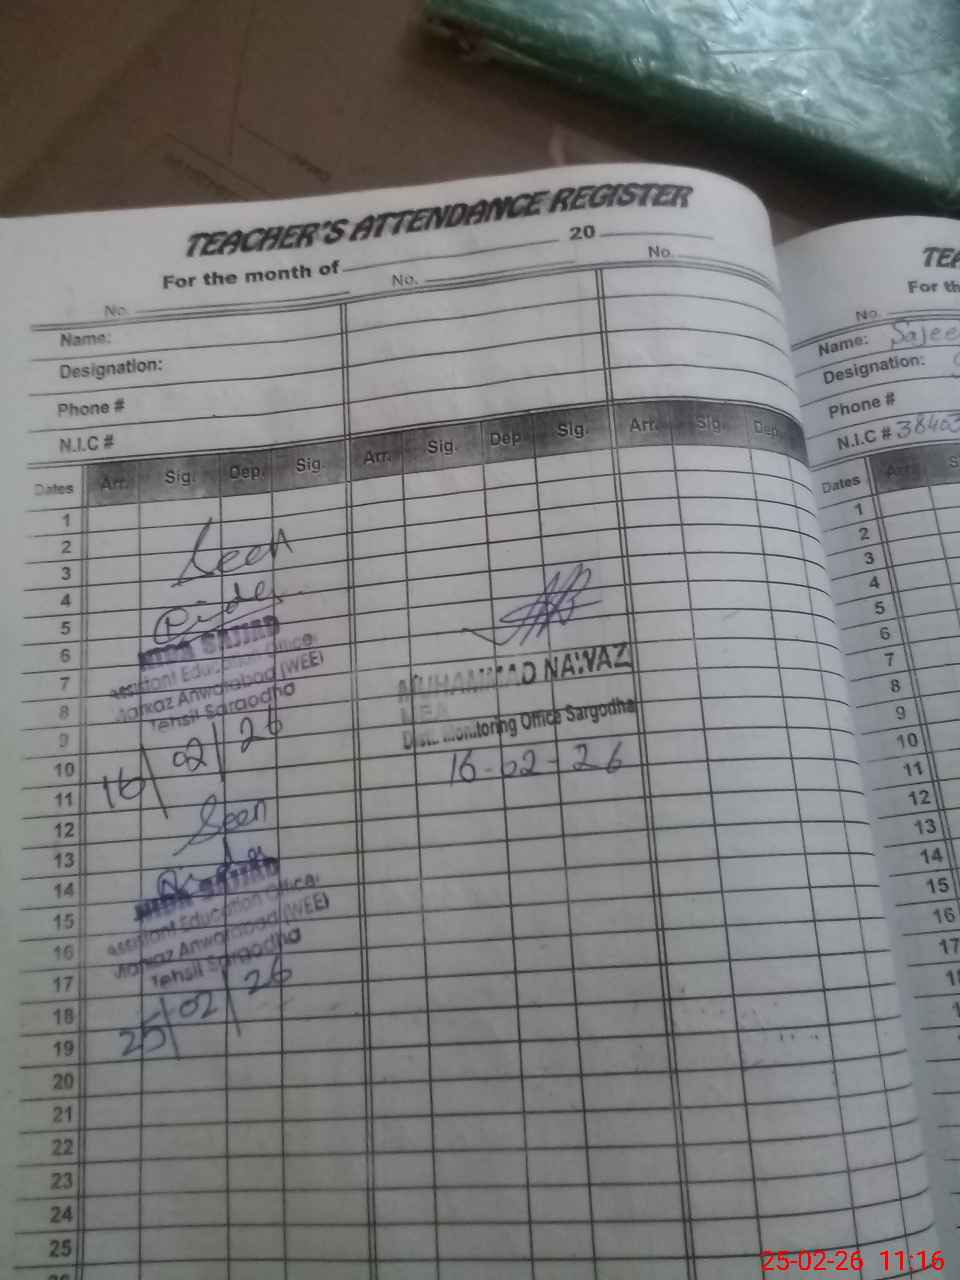 TEACHER'S ATTENDANCE REGISTER
For the month of 20
No. No. No.
Name:
Designation:
Phone #
N.I.C #
Dates Arr. Sig. Dep. Sig. Arr. Sig. Dep Sig. Arr. Sig. Dep.
1
2
3
4
5
6
7
8
9
10
11
12
13
14
15
16
17
18
19
20
21
22
23
24
25
Seen
NIDA SAJJAD
Assistant Education Officer
Markaz Anwarabad (WEE)
Tehsil Sargodha
16/02/26
Seen
NIDA SAJJAD
Assistant Education Officer
Markaz Anwarabad (WEE)
Tehsil Sargodha
25/02/26
MUHAMMAD NAWAZ
MEA
Distt. Monitoring Office Sargodha
16-02-26
TEA
For th
No.
Name: Sajee
Designation:
Phone #
N.I.C # 38403
Dates Arr. S
1
2
3
4
5
6
7
8
9
10
11
12
13
14
15
16
17
25-02-26 11:16